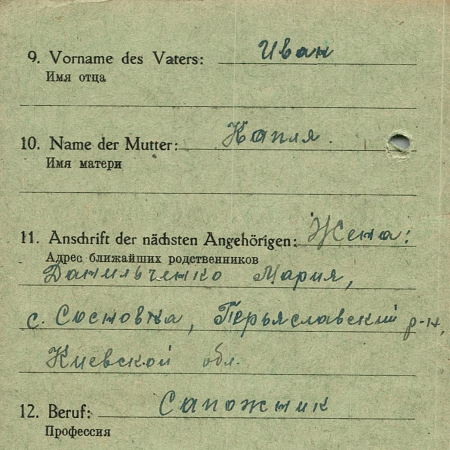 9. Vorname des Vaters: Иван
Имя отца
10. Name der Mutter: Капля.
Имя матери
11. Anschrift der nächsten Angehörigen: Жена:
Адрес ближайших родственников
Данильченко Мария,
с. Сосновка, Перьяславский р-н,
Киевской обл.
12. Beruf: Сапожник
Профессия